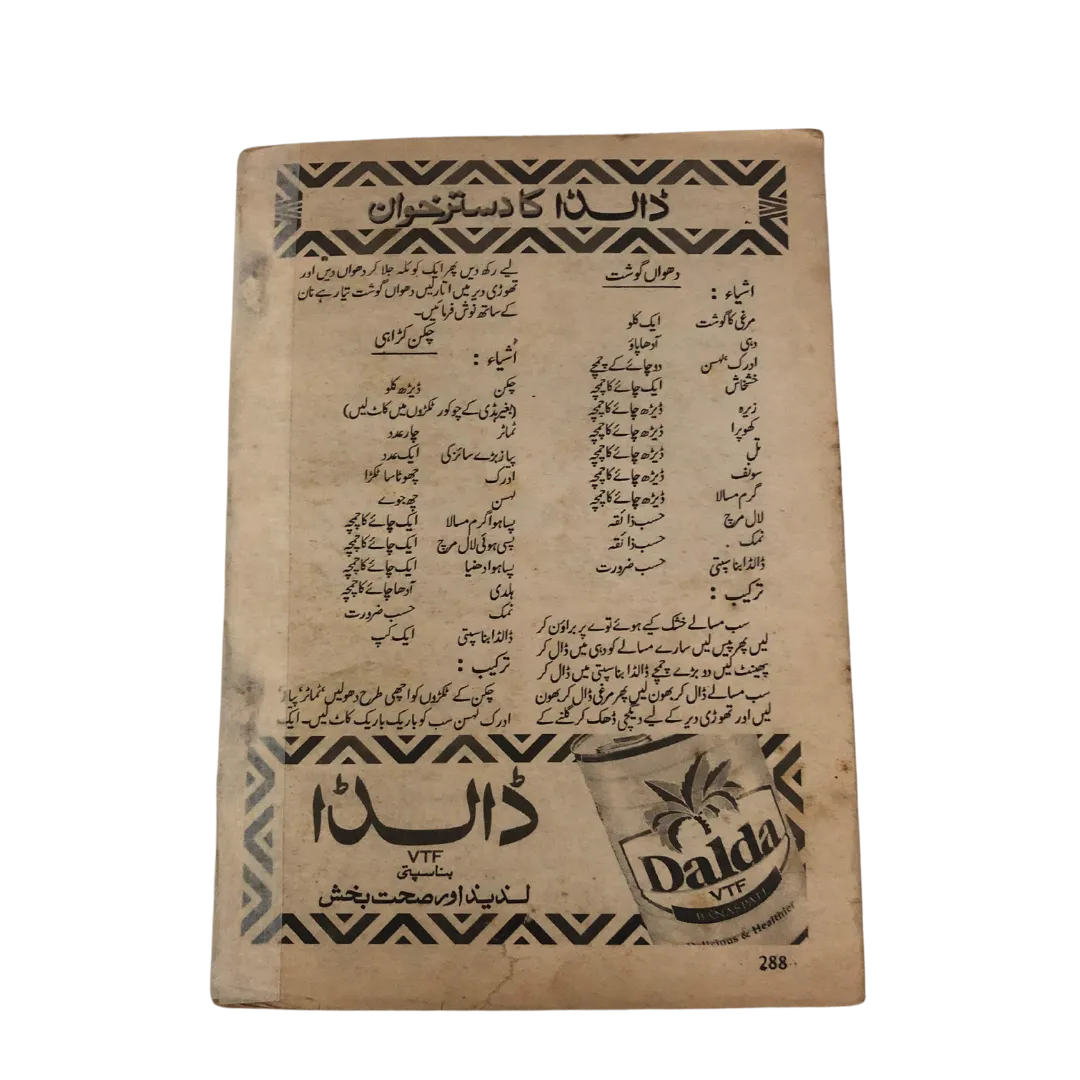 ڈالڈا کا دسترخوان
دھواں گوشت
اشیاء :
مرغی کا گوشت ایک کلو
دہی آدھا پاؤ
ادرک، لہسن دو چائے کے چمچے
خشخاش ایک چائے کا چمچہ
زیرہ ڈیڑھ چائے کا چمچہ
کھوپرا ڈیڑھ چائے کا چمچہ
تل ڈیڑھ چائے کا چمچہ
سونف ڈیڑھ چائے کا چمچہ
گرم مسالا ڈیڑھ چائے کا چمچہ
لال مرچ حسب ذائقہ
نمک حسب ذائقہ
ڈالڈا بناسپتی حسب ضرورت
ترکیب :
سب مسالے خشک کیے ہوئے توے پر براؤن کر
لیں پھر پیس لیں سارے مسالے کو دہی میں ڈال کر
پھینٹ لیں دو بڑے چمچے ڈالڈا بناسپتی میں ڈال کر
سب مسالے ڈال کر بھون لیں پھر مرغی ڈال کر بھون
لیں اور تھوڑی دیر کے لیے دیگچی ڈھک کر گلنے کے
لیے رکھ دیں پھر ایک کوئلہ جلا کر دھواں دیں اور
تھوڑی دیر میں اتار لیں دھواں گوشت تیار ہے نان
کے ساتھ نوش فرمائیں۔
چکن کڑاہی
اشیاء :
چکن ڈیڑھ کلو
(بغیر ہڈی کے چوکور ٹکڑوں میں کاٹ لیں)
ٹماٹر چار عدد
پیاز بڑے سائز کی ایک عدد
ادرک چھوٹا سا ٹکڑا
لہسن چھ جوے
پسا ہوا گرم مسالا ایک چائے کا چمچہ
پسی ہوئی لال مرچ ایک چائے کا چمچہ
پسا ہوا دھنیا ایک چائے کا چمچہ
ہلدی آدھا چائے کا چمچہ
نمک حسب ضرورت
ڈالڈا بناسپتی ایک کپ
ترکیب :
چکن کے ٹکڑوں کو اچھی طرح دھولیں، ٹماٹر،
ادرک لہسن سب کو باریک باریک کاٹ لیں۔ ایک
ڈالڈا
VTF
بناسپتی
لذیذ اور صحت بخش
Dalda
VTF
BANASPATI
Delicious & Healthier
288